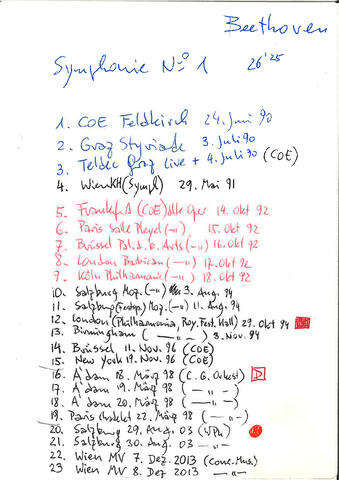 Beethoven
Symphonie No 1 26'25
1. COE Feldkirch 24. Juni 90
2. Graz Styriade 3. Juli 90
3. Teldec Graz Live + 4. Juli 90 (COE)
4. Wien KH (Symph) 29. Mai 91
5. Frankfurt (COE) Alte Oper 14. Okt 92
6. Paris Salle Pleyel (-"-) 15. Okt 92
7. Brüssel Pal. d. b. Arts (-"-) 16. Okt 92
8. London Barbican (-"-) 17. Okt 92
9. Köln Philharmonie (-"-) 18. Okt 92
10. Salzburg Moz. (-"-) 3. Aug. 94
11. Salzburg (Festsp.) Moz. (-"-) 11. Aug. 94
12. London (Philharmonia, Roy. Fest. Hall) 29. Okt 94
13. Birmingham (-"-) 3. Nov. 94
14. Brüssel 11. Nov. 96 (COE)
15. New York 19. Nov. 96 (COE)
16. A'dam 18. März 98 (C.G. Orkest) D
17. A'dam 19. März 98 (-"-)
18. A'dam 20. März 98 (-"-)
19. Paris Chatelet 22. März 98 (-"-)
20. Salzburg 29. Aug. 03 (WPh)
21. Salzburg 30. Aug. 03 -"-
22. Wien MV 7. Dez. 2013 (Conc. Mus.)
23 Wien MV 8. Dez 2013 -"-